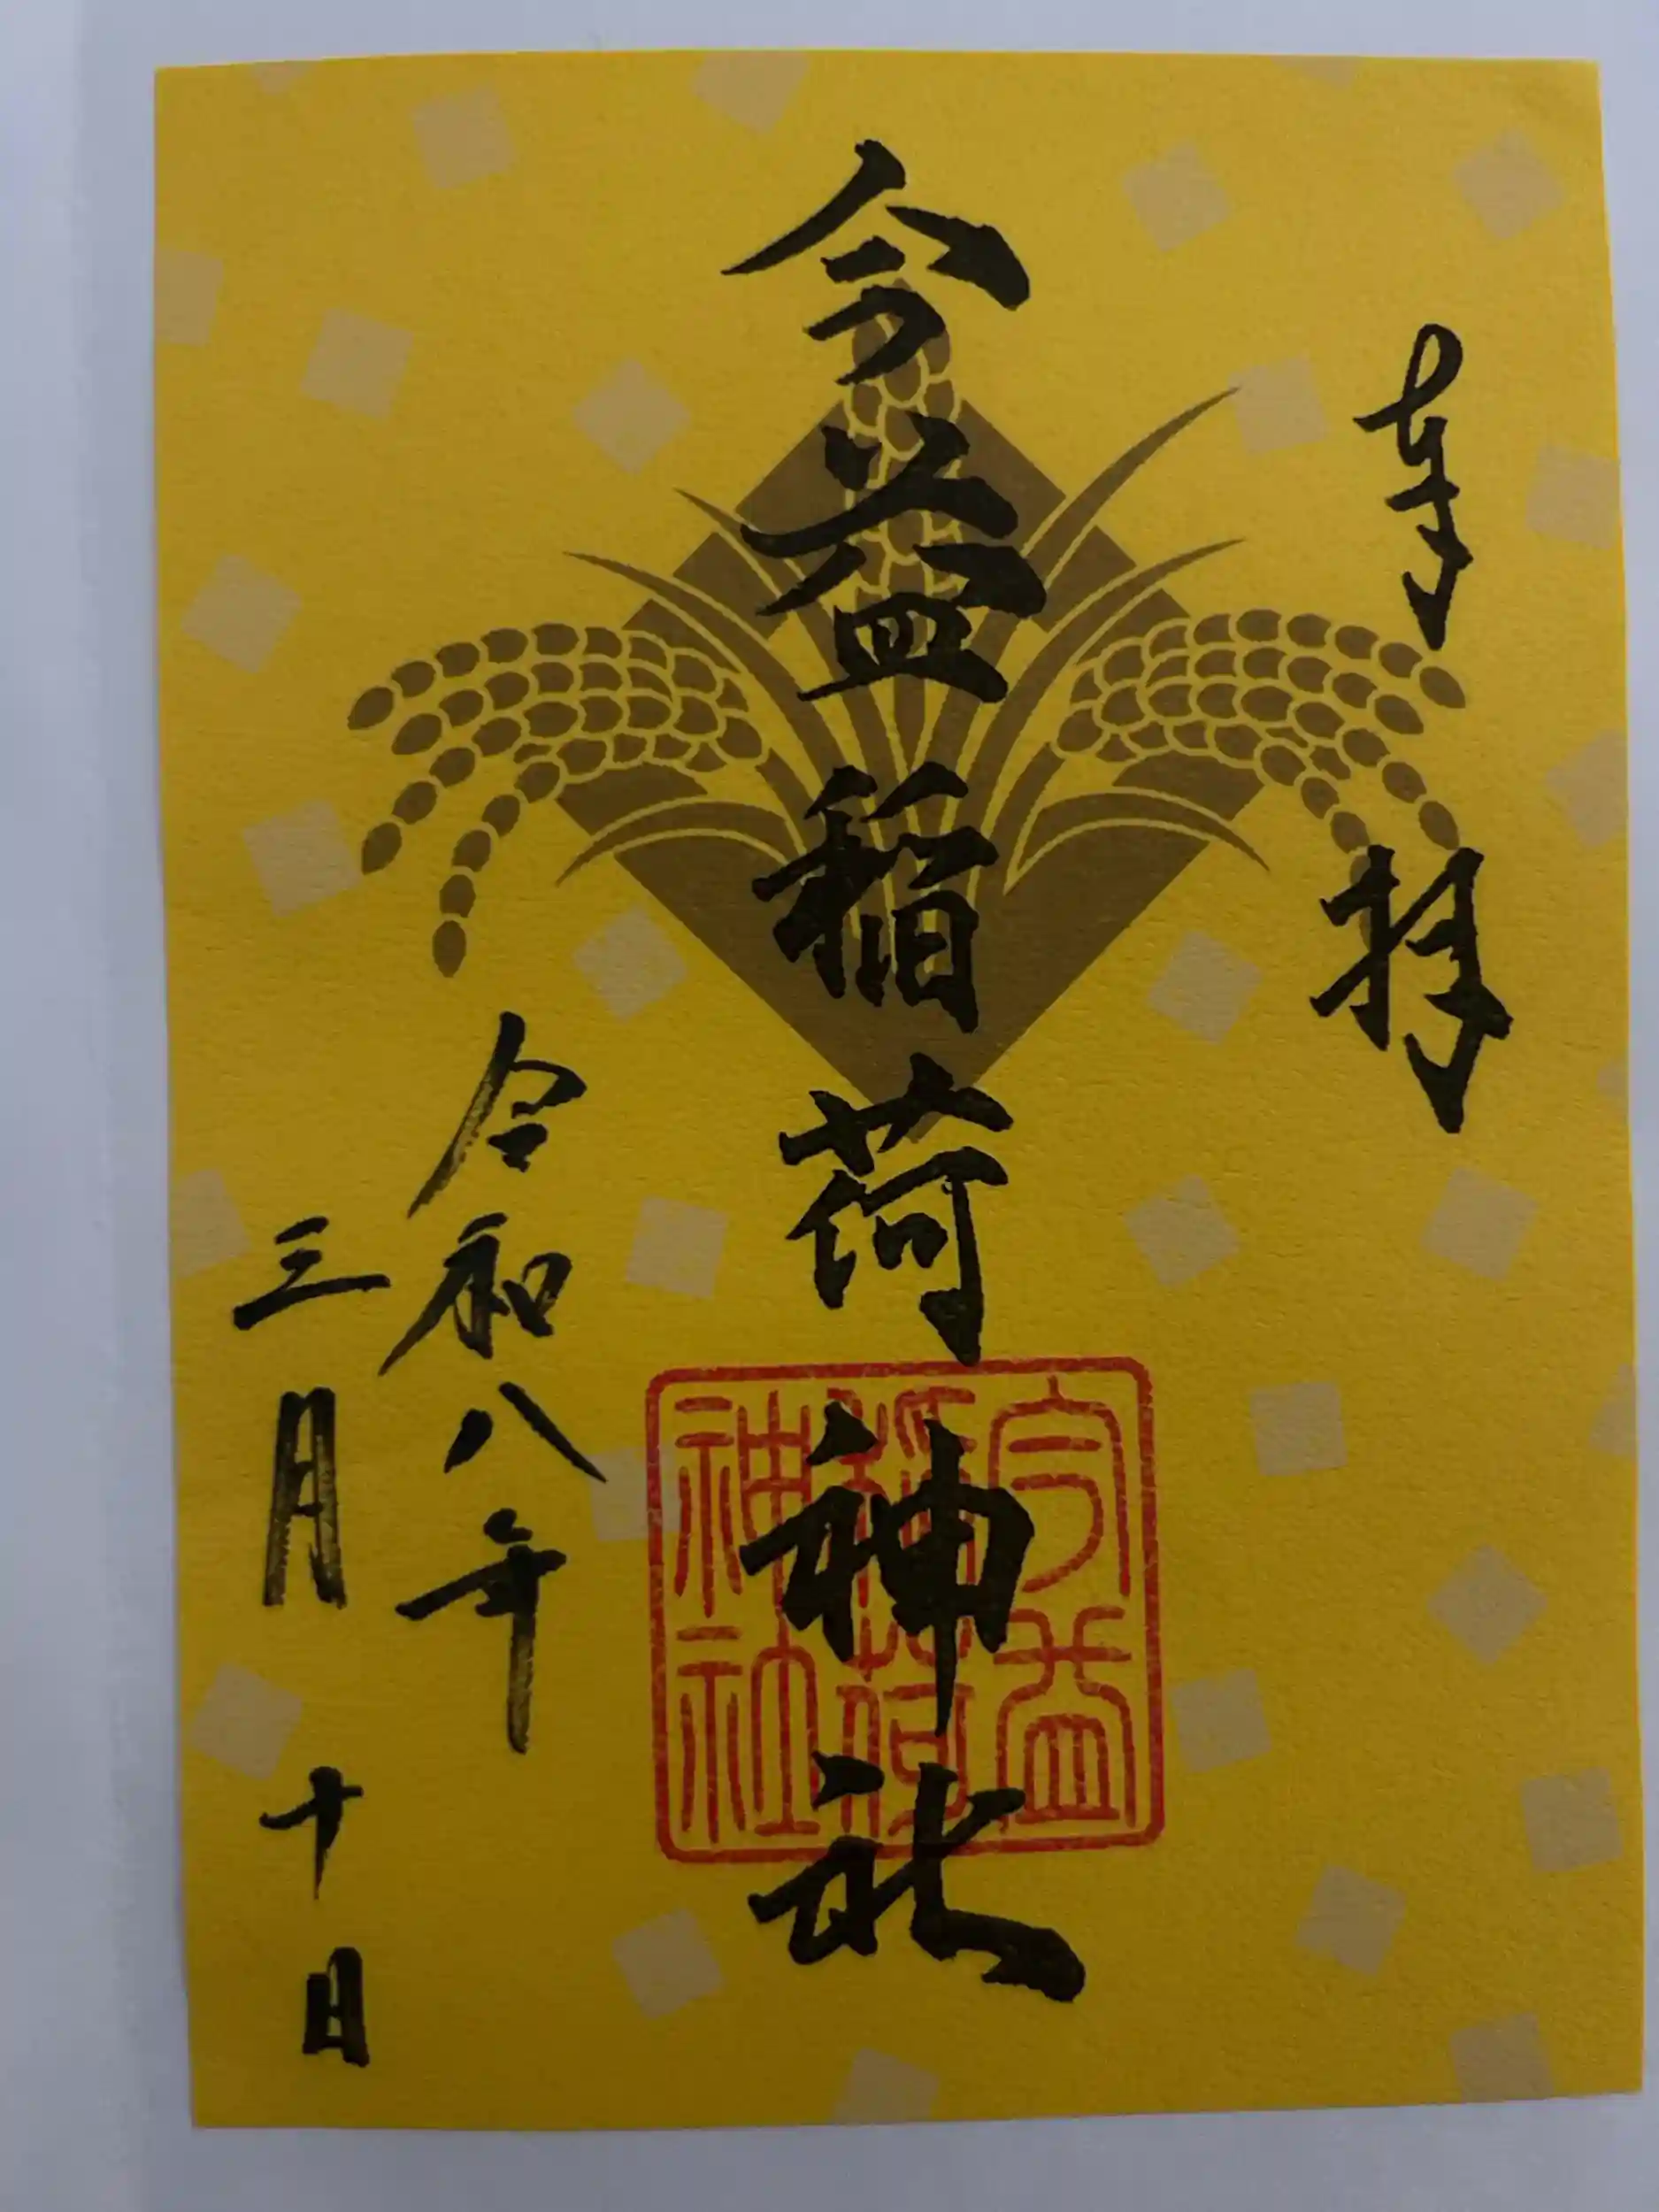 奉拝
今益稲荷神社
今益
稲荷
神社
令和八年
三月十日